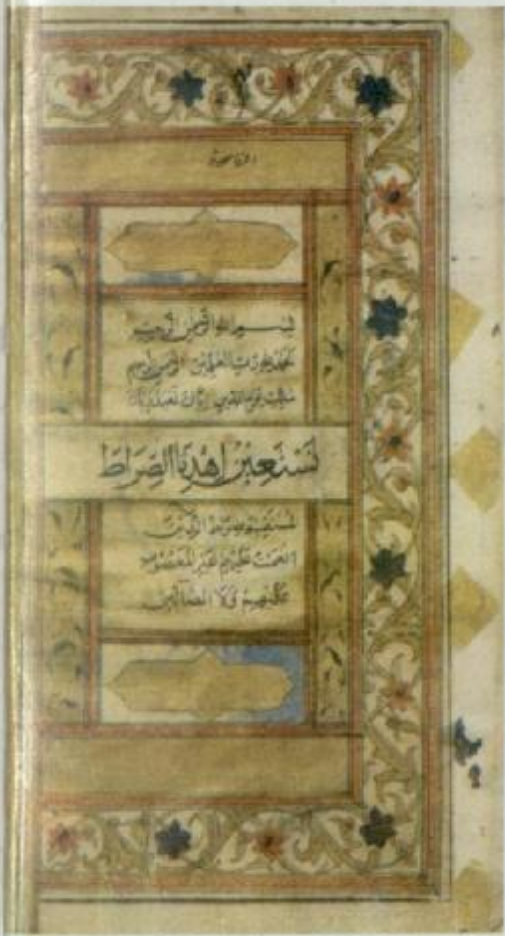 الفاتحة
بسم الله الرحمن الرحيم
الحمد لله رب العلمين الرحمن الرحيم
ملك يوم الدين إياك نعبد وإياك
نَسْتَعِينُ اهْدِنَا الصِّرَاطَ
المستقيم صراط الذين
انعمت عليهم غير المغضوب
عليهم ولا الضالين